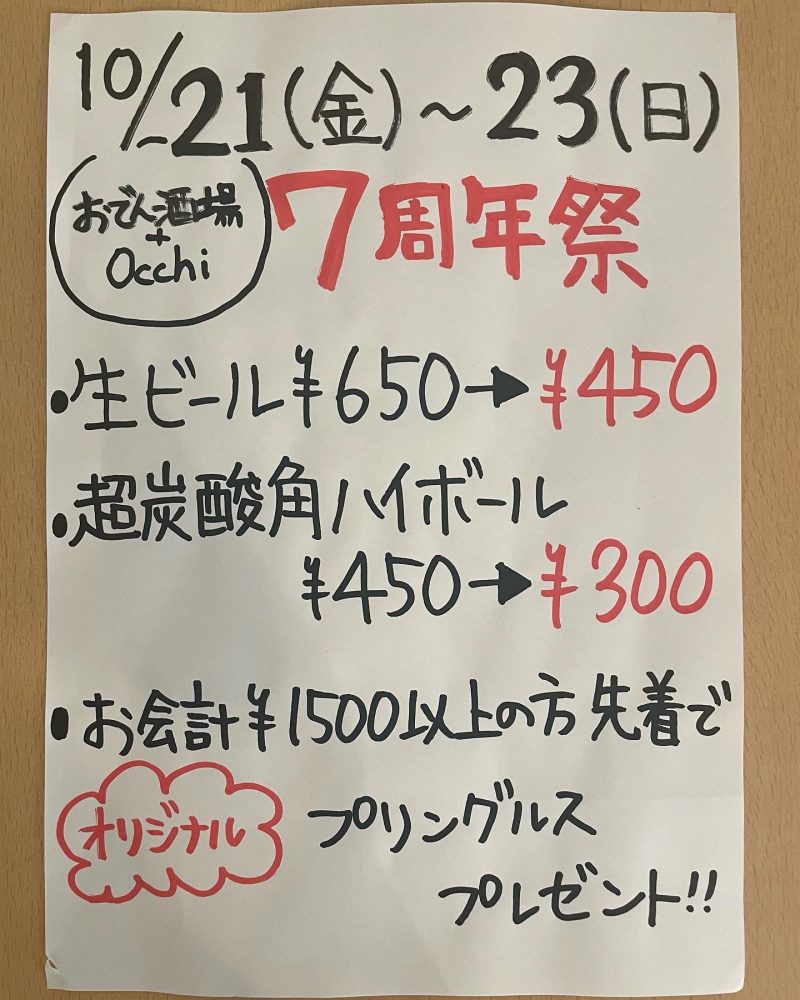 10/21(金)~23(日)
おでん酒場
+
Occhi
7周年祭
・生ビール¥650→¥450
・超炭酸角ハイボール
¥450→¥300
・お会計¥1500以上の方 先着で
オリジナル プリングルス
プレゼント!!